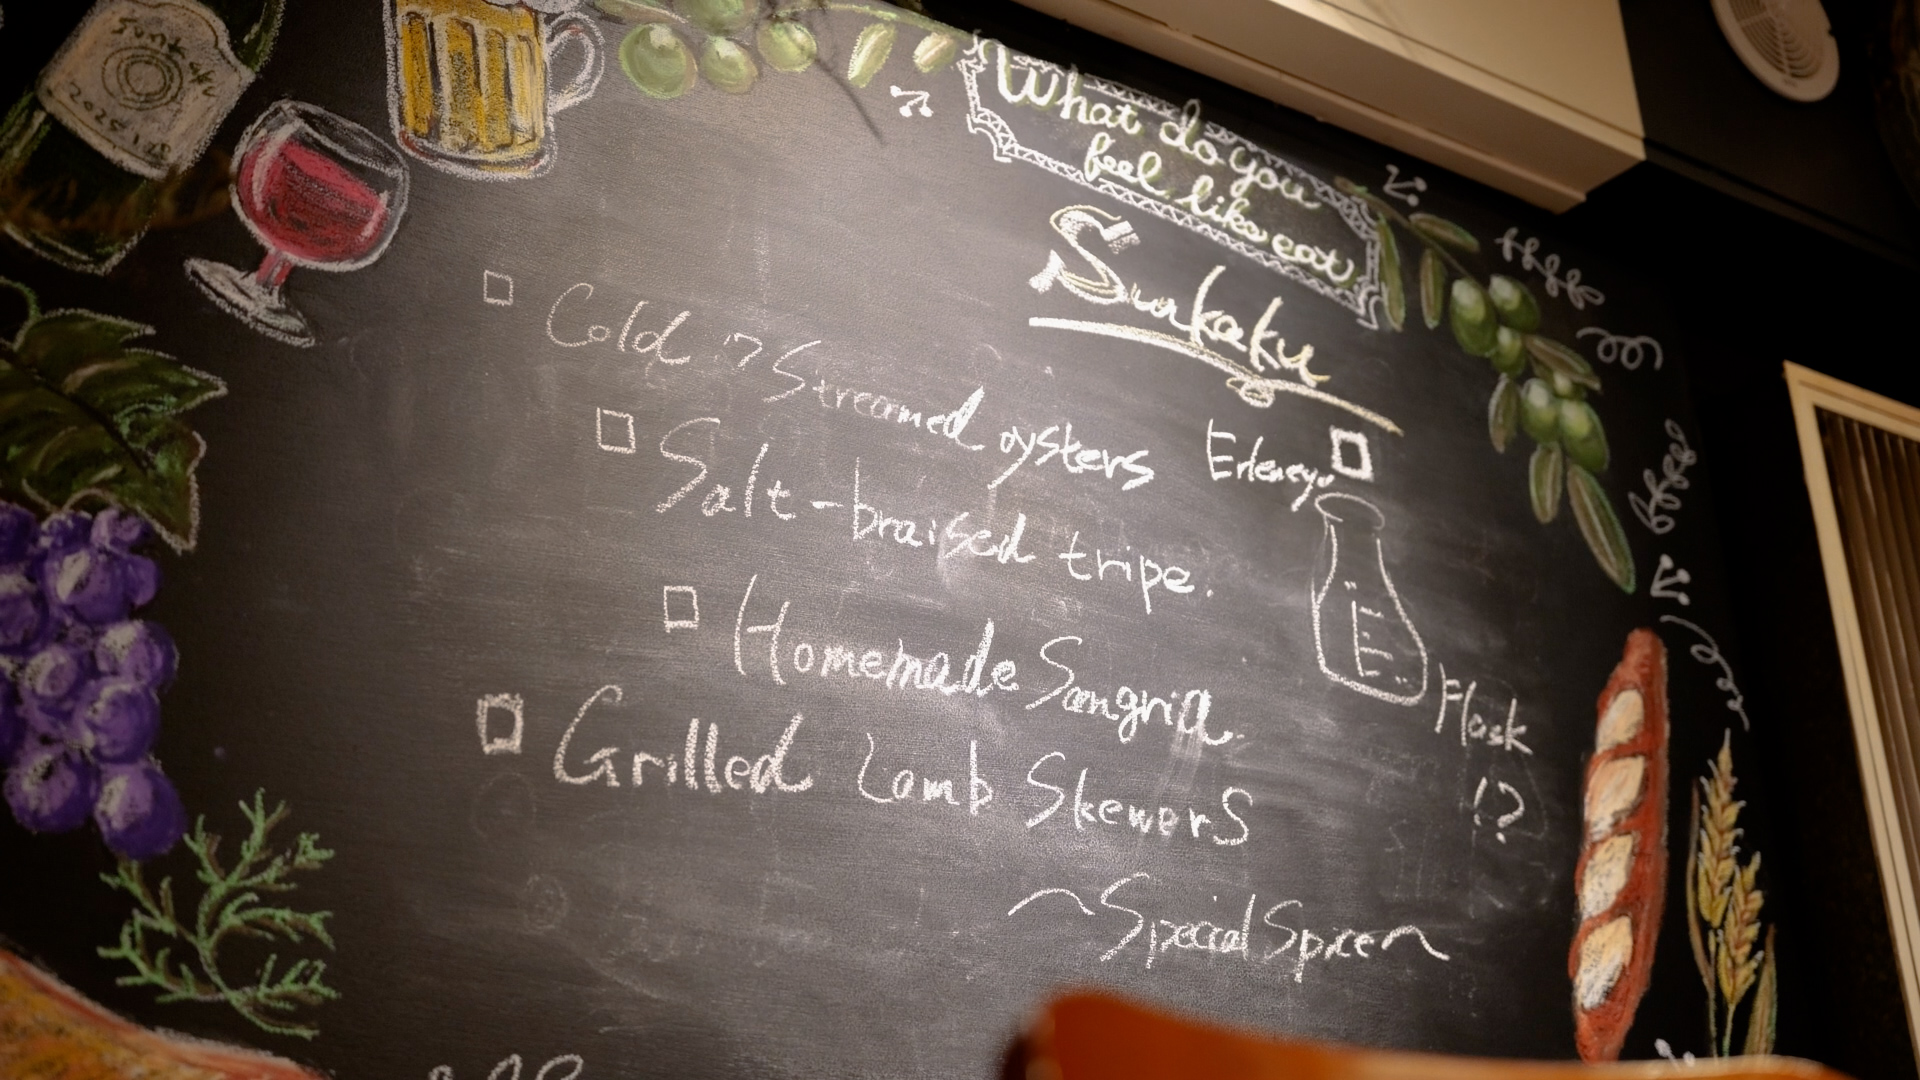 What do you
feel like eat
Sunkaku
□ Cold ?? Streamed oysters
□ Salt-braised tripe.
□ Homemade Sangria.
□ Grilled Lamb Skewers
~Special Spice~
□
Erleneyo
Flask
!?